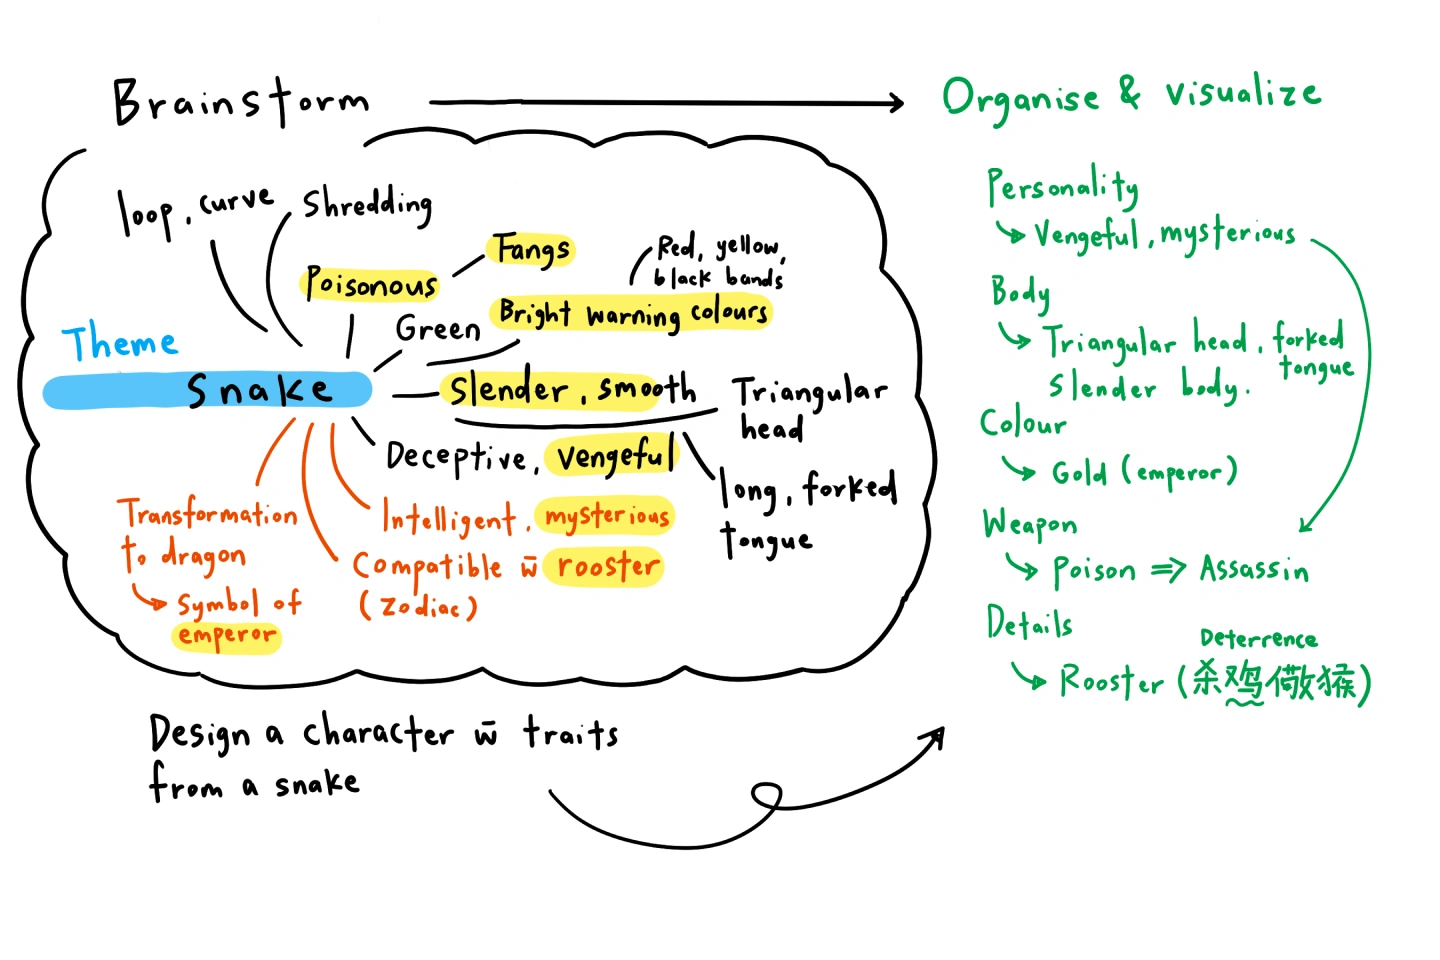 Brainstorm
Organise & visualize
loop, curve
Shredding
Poisonous
Fangs
Red, yellow,
black bands
Bright warning colours
Green
Theme
Snake
Slender, smooth
Triangular
head
long, forked
tongue
Deceptive, vengeful
Intelligent, mysterious
Compatible w̄ rooster
(Zodiac)
Transformation
to dragon
Symbol of
emperor
Design a character w̄ traits
from a snake
Personality
Vengeful, mysterious
Body
Triangular head, forked
tongue
Slender body.
Colour
Gold (emperor)
Weapon
Poison => Assassin
Details
Deterrence
Rooster (杀鸡儆猴)